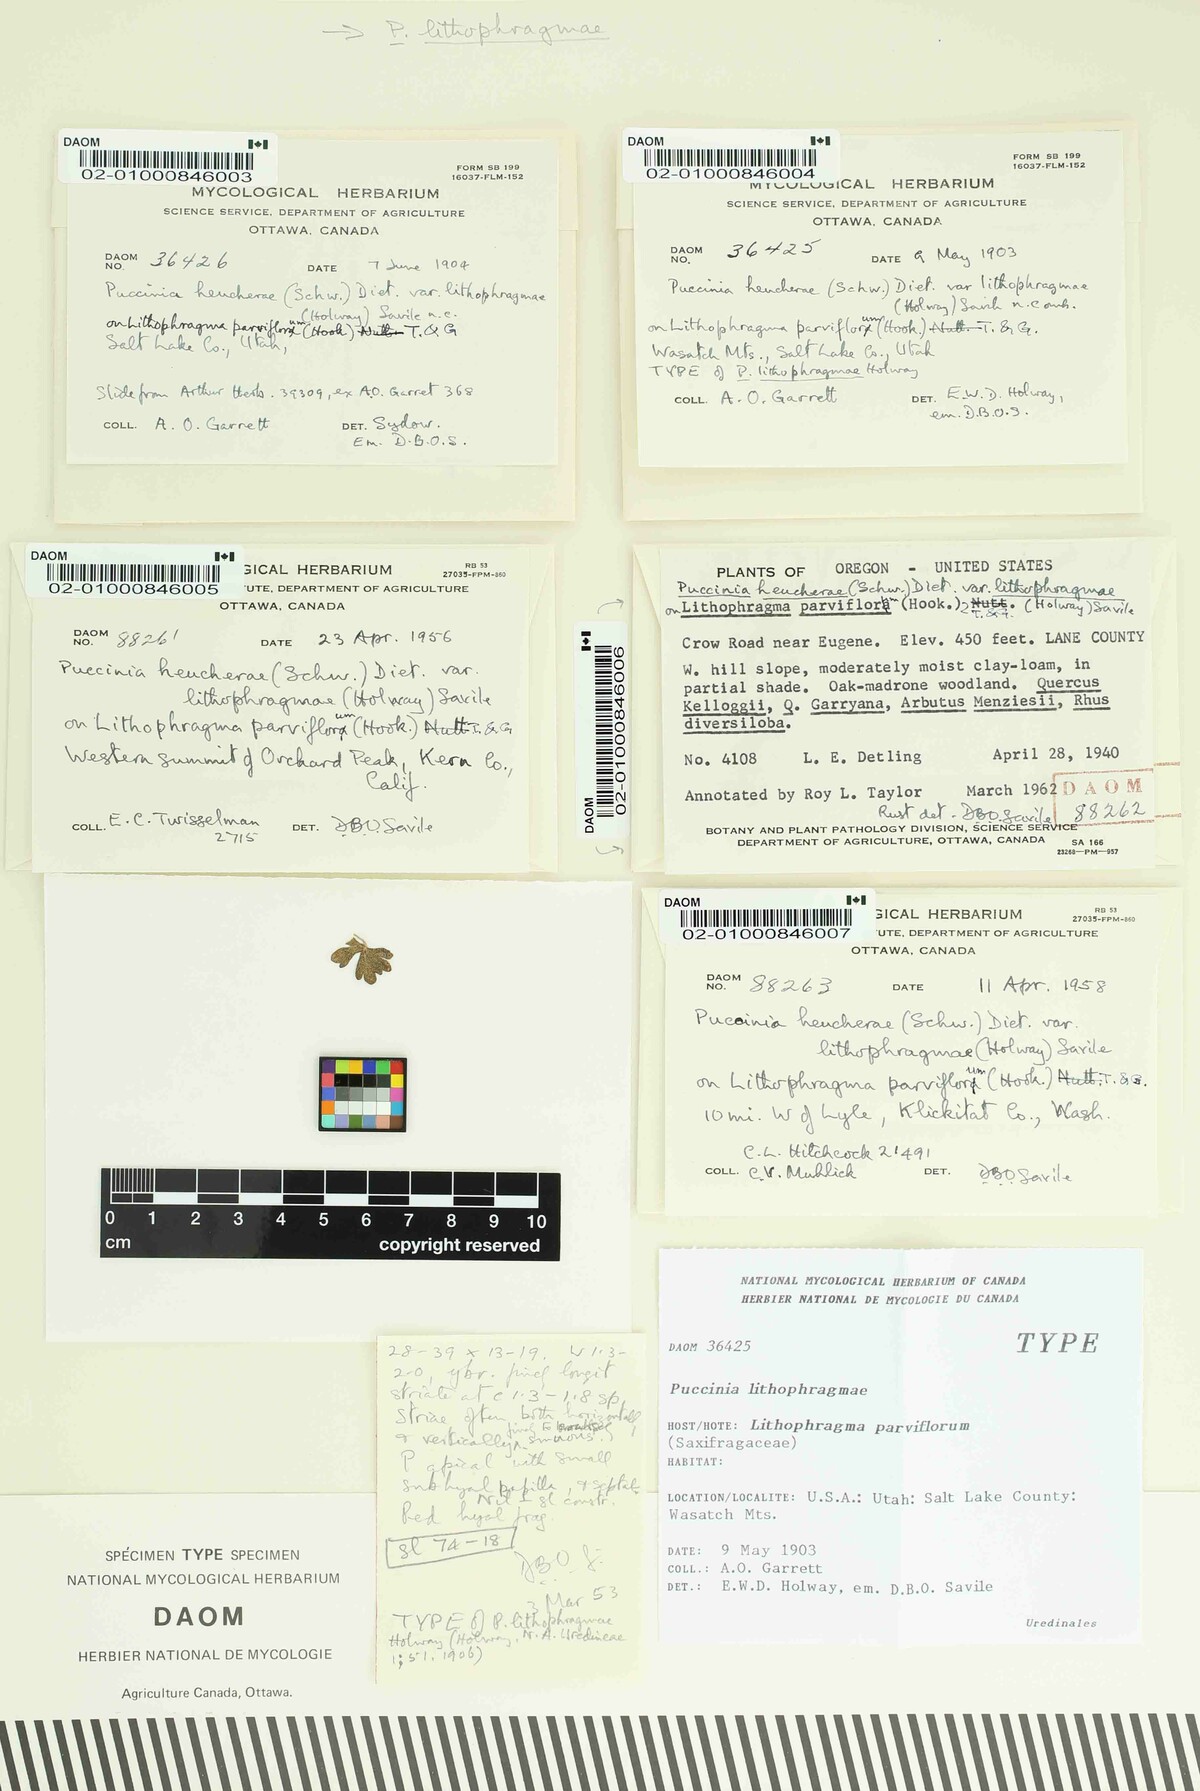 → P. lithophragmae
DAOM
02-01000846003
FORM SB 199
16037-FLM-152
MYCOLOGICAL HERBARIUM
SCIENCE SERVICE, DEPARTMENT OF AGRICULTURE
OTTAWA, CANADA
DAOM NO. 36426 DATE 7 June 1904
Puccinia heucherae (Schw.) Diet. var. lithophragmae
(Holway) Savile n.c.
on Lithophragma parviflorum (Hook) Nutt. T. & G
Salt Lake Co., Utah,
Slide from Arthur Herb. 39309, ex A.O. Garret 368
COLL. A. O. Garrett DET. Sydow.
Em. D.B.O.S.
DAOM
02-01000846004
FORM SB 199
16037-FLM-152
MYCOLOGICAL HERBARIUM
SCIENCE SERVICE, DEPARTMENT OF AGRICULTURE
OTTAWA, CANADA
DAOM NO. 36425 DATE 9 May 1903
Puccinia heucherae (Schw.) Diet. var lithophragmae
(Holway) Savile n. comb.
on Lithophragma parviflorum (Hook.) Nutt. T. & G.
Wasatch Mts., Salt Lake Co., Utah
TYPE of P. lithophragmae Holway
COLL. A. O. Garrett DET. E.W.D. Holway,
em. D.B.O.S.
DAOM
02-01000846005
GICAL HERBARIUM
RB 53
27035-FPM-860
TUTE, DEPARTMENT OF AGRICULTURE
OTTAWA, CANADA
DAOM NO. 88261 DATE 23 Apr. 1956
Puccinia heucherae (Schw.) Diet. var.
lithophragmae (Holway) Savile
on Lithophragma parviflorum (Hook.) Nutt. T. & G
Western summit of Orchard Peak, Kern Co.,
Calif.
COLL. E. C. Twisselman DET. DBO Savile
2715
DAOM
02-01000846006
PLANTS OF OREGON - UNITED STATES
Puccinia heucherae (Schw.) Diet. var. lithophragmae
on Lithophragma parviflorum (Hook.) Nutt. (Holway) Savile
T. & G.
Crow Road near Eugene. Elev. 450 feet. LANE COUNTY
W. hill slope, moderately moist clay-loam, in
partial shade. Oak-madrone woodland. Quercus
Kelloggii, Q. Garryana, Arbutus Menziesii, Rhus
diversiloba.
No. 4108 L. E. Detling April 28, 1940
Annotated by Roy L. Taylor March 1962
DAOM
88262
Rust det. DBO Savile
BOTANY AND PLANT PATHOLOGY DIVISION, SCIENCE SERVICE
DEPARTMENT OF AGRICULTURE, OTTAWA, CANADA
SA 166
23268-PM-957
DAOM
02-01000846007
GICAL HERBARIUM
RB 53
27035-FPM-860
TUTE, DEPARTMENT OF AGRICULTURE
OTTAWA, CANADA
DAOM NO. 88263 DATE 11 Apr. 1958
Puccinia heucherae (Schw.) Diet. var.
lithophragmae (Holway) Savile
on Lithophragma parviflorum (Hook.) Nutt. T. & G.
10 mi. W of Lyle, Klickitat Co., Wash.
C.L. Hitchcock 21491
COLL. C.V. Muhlick DET. DBO Savile
0 1 2 3 4 5 6 7 8 9 10
cm copyright reserved
28-39 x 13-19. W 1.3-
2.0, longit
striate at c 1.3-1.8 sp.
Striae often both horizontally
& vertically sinuous.
P apical with small
subhyal papilla, & septal
Nil ± sl constr.
Ped hyal frag.
sl 74-18
D.B.O.S.
3 Mar 53
TYPE of P. lithophragmae
Holway (Holway, N.A. Uredineae
1; 51. 1906)
NATIONAL MYCOLOGICAL HERBARIUM OF CANADA
HERBIER NATIONAL DE MYCOLOGIE DU CANADA
DAOM 36425 TYPE
Puccinia lithophragmae
HOST/HOTE: Lithophragma parviflorum
(Saxifragaceae)
HABITAT:
LOCATION/LOCALITE: U.S.A.: Utah: Salt Lake County:
Wasatch Mts.
DATE: 9 May 1903
COLL.: A.O. Garrett
DET.: E.W.D. Holway, em. D.B.O. Savile
Uredinales
SPÉCIMEN TYPE SPECIMEN
NATIONAL MYCOLOGICAL HERBARIUM
DAOM
HERBIER NATIONAL DE MYCOLOGIE
Agriculture Canada, Ottawa.